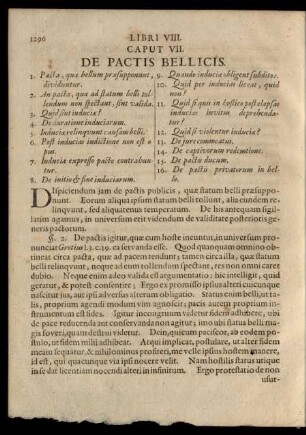 1296 LIBRI VIII.
CAPUT VII.
DE PACTIS BELLICIS.
1. Pacta, quæ bellum præsupponunt,
dividuntur.
2. An pacta, quæ ad statum belli tol-
lendum non spectant, sint valida.
3. Quid sint induciæ?
4. De duratione induciarum.
5. Induciæ relinquunt causam belli.
6. Post inducias indictione non est o-
pus.
7. Induciæ expresso pacto contrahun-
tur.
8. De initio & fine induciarum.
9. Quando induciæ obligent subditos.
10. Quid per inducias liceat, quid
non?
11. Quid si quis in hostico post elapsas
inducias invitus deprehenda-
tur?
12. Quid si violentur induciæ?
13. De jure commeatus.
14. De captivorum redemtione.
15. De pacto ducum.
16. De pactis privatorum in bel-
lo.
Dispiciendum jam de pactis publicis, quæ statum belli præsuppo-
nunt. Eorum aliqua ipsum statum belli tollunt, alia eundem re-
linquunt, sed aliquatenus temperatum. De his antequam sigil-
latim agamus, in universum erit videndum de validitate posterioris ge-
neris pactorum.
§. 2. De pactis igitur, quæ cum hoste ineuntur, in universum pro-
nunciat Grotius l. 3. c. 19. ea servanda esse. Quod quanquam omnino ob-
tineat circa pacta, quæ ad pacem tendunt; tamen circa illa, quæ statum
belli relinquunt, neque ad eum tollendum spectant, res non omni caret
dubio. Neque enim adeo valida est argumentatio: hic intelligit, quid
geratur, & potest consentire; Ergo ex promisso ipsius alteri cuicunque
nascitur jus, aut ipsi adversus alterum obligatio. Status enim belli jus ta-
lis, proprium agendi modum vim agnoscit; pacis autem proprium in-
strumentum est fides. Igitur incongruum videtur fidem adhibere, ubi
de pace reducenda aut conservanda non agitur; imo ubi status belli ma-
gis foveri, quam destrui videtur. Donec, quicum paciscor, ab eodem po-
stulo, ut fidem mihi adhibeat. Atqui implicat, postulare, ut alter fidem
meam sequatur, & nihilominus profiteri, me velle ipsius hostem manere,
id est, qui quacunque via ipsi nocere velit. Nam hostilis status utique
in se dat licentiam nocendi alteri in infinitum. Ergo protestatio de non
usur-